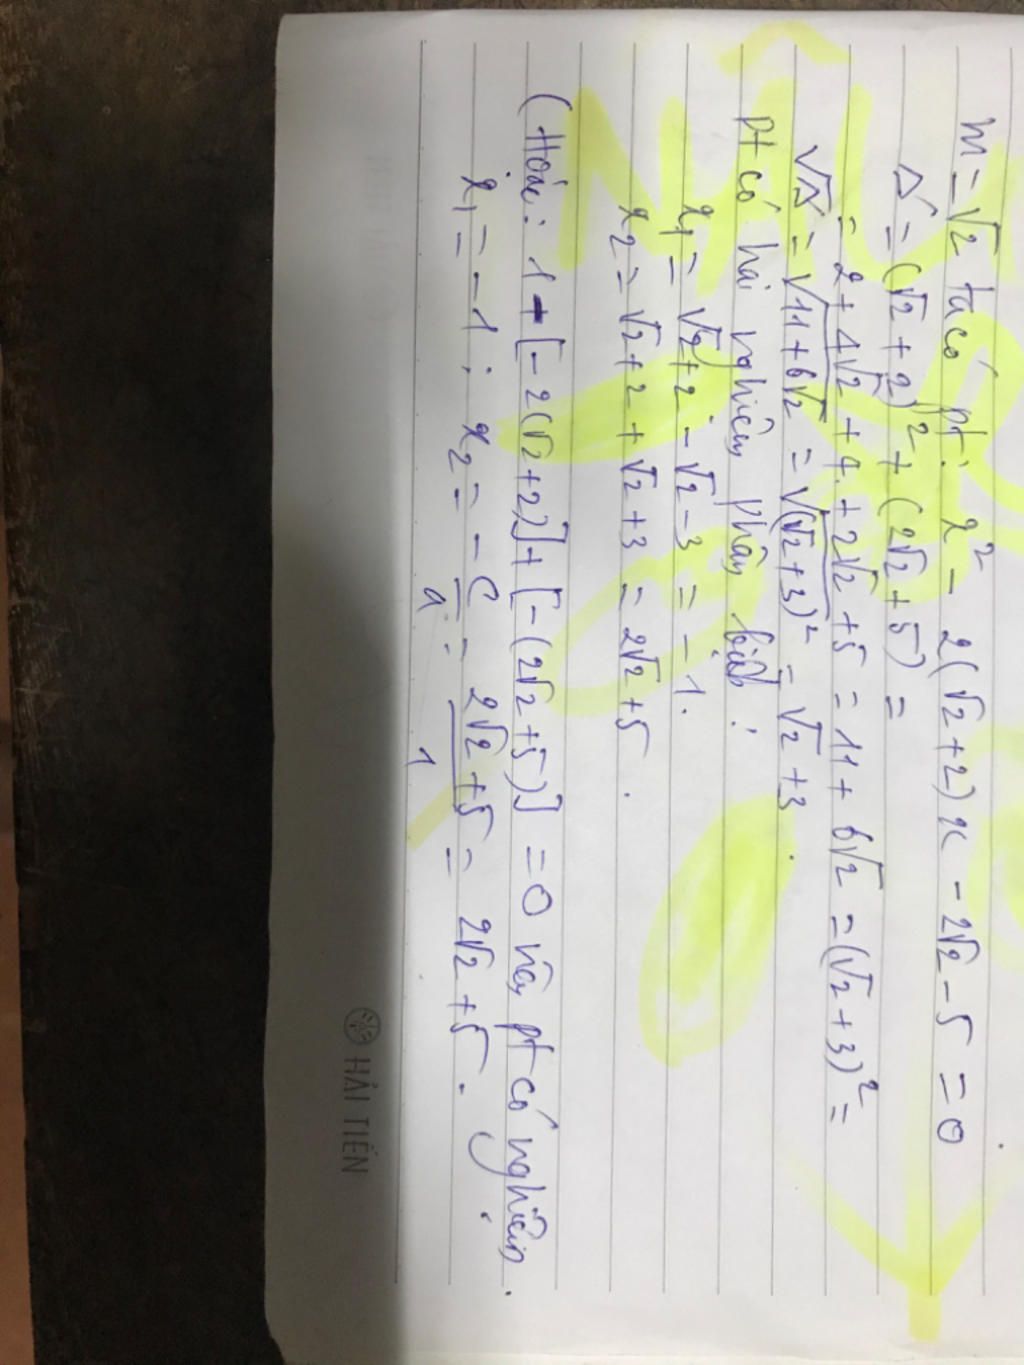 m = √2 ta có pt: x² - 2(√2+2)x - 2√2 - 5 = 0
Δ' = (√2+2)² + (2√2+5) =
= 2 + 4√2 + 4 + 2√2 + 5 = 11 + 6√2 = (√2+3)² =
√Δ' = √(11+6√2) = √(√2+3)² = √2 + 3.
pt có hai nghiệm phân biệt:
x₁ = √2+2 - √2 - 3 = -1.
x₂ = √2+2 + √2+3 = 2√2+5.
(Hoặc: 1 - [-2(√2+2)] + [-(2√2+5)] = 0 nên pt có nghiệm.
x₁ = -1; x₂ = -c/a = (2√2+5)/1 = 2√2+5.)
HẢI TIẾN